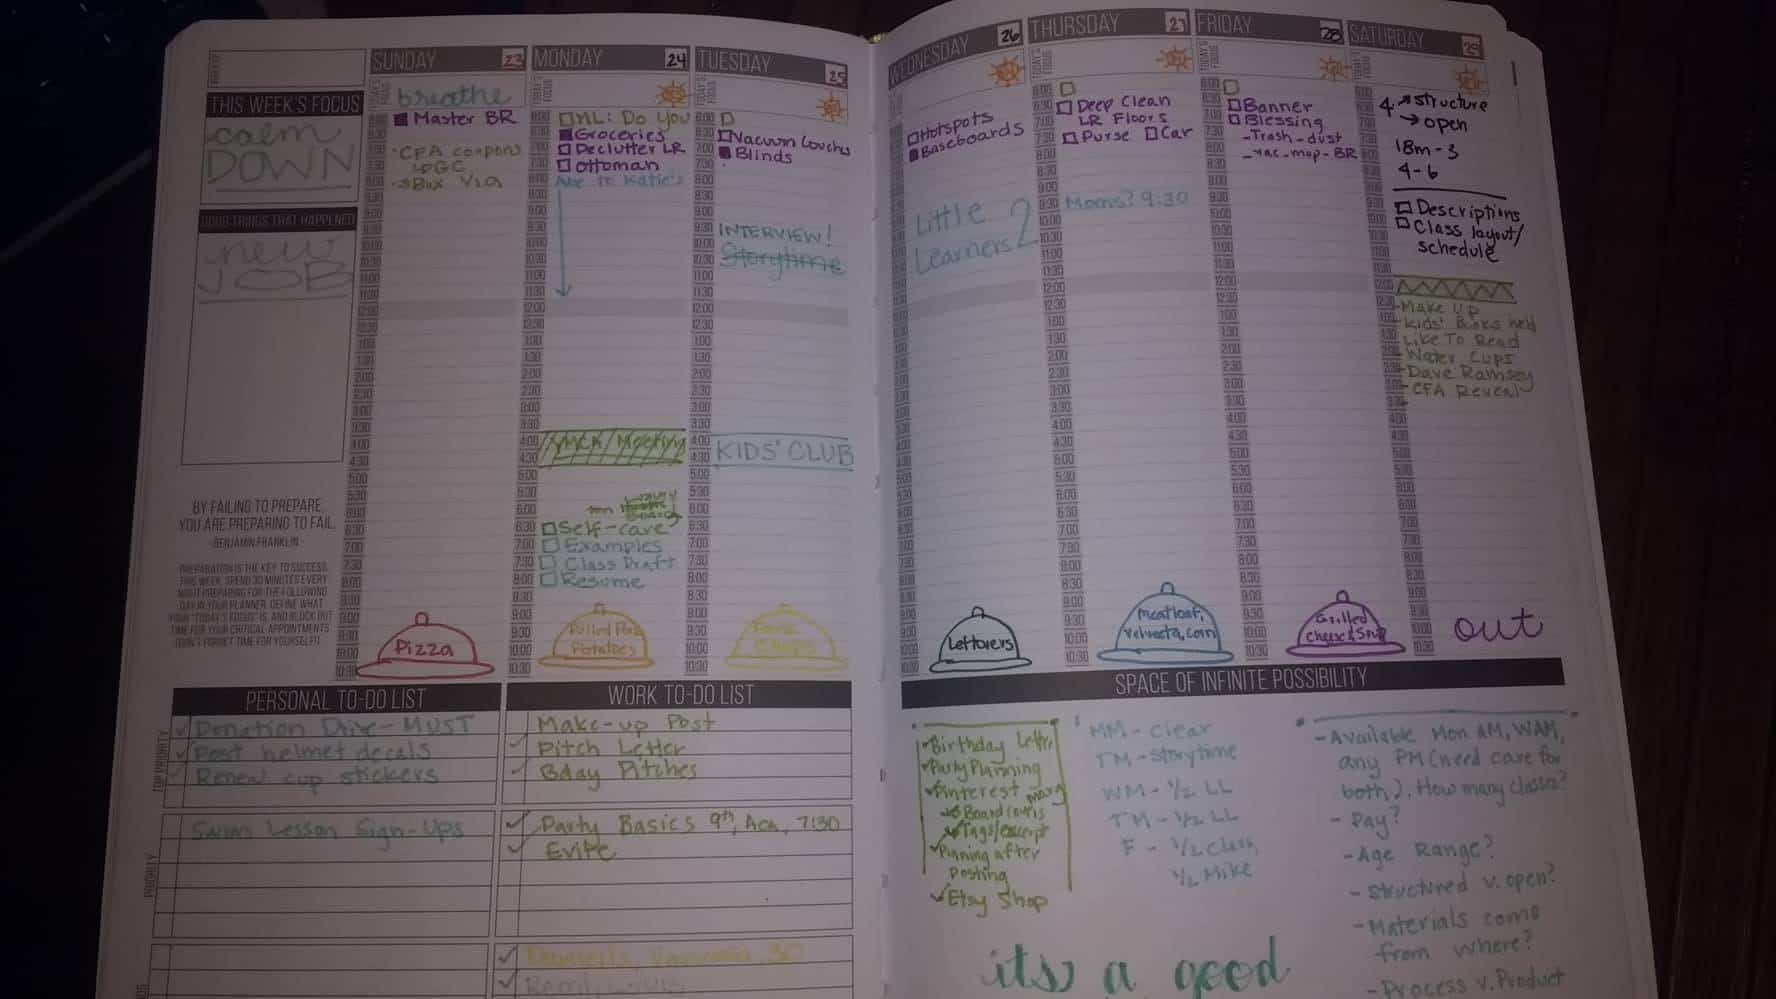 THIS WEEK'S FOCUS
calm
DOWN
GOOD THINGS THAT HAPPENED
new
JOB
BY FAILING TO PREPARE,
YOU ARE PREPARING TO FAIL.
- BENJAMIN FRANKLIN -
PREPARATION IS THE KEY TO SUCCESS.
THIS WEEK, SPEND 30 MINUTES EVERY
NIGHT PREPARING FOR THE FOLLOWING
DAY IN YOUR PLANNER. DEFINE WHAT
YOUR "TODAY'S FOCUS" IS, AND BLOCK OUT
TIME FOR YOUR CRITICAL APPOINTMENTS.
DON'T FORGET TIME FOR YOURSELF!
SUNDAY 23
TODAY'S FOCUS
breathe
Master BR
CFA coupons
Pizza
MONDAY 24
TODAY'S FOCUS
ML: Do You
Groceries
Declutter LR
Ottoman
to Katie's
Meeting
Self-care
Examples
Class Draft
Resume
Pulled Pork
Potatoes
TUESDAY 25
TODAY'S FOCUS
Vacuum Couches
Blinds
INTERVIEW!
Storytime
KIDS' CLUB
WEDNESDAY 26
Hotspots
Baseboards
Little
Learners 2
Leftovers
THURSDAY 27
TODAY'S FOCUS
Deep Clean
LR Floors
Purse Car
Moms? 9:30
Meatloaf,
Velveeta, corn
FRIDAY 28
TODAY'S FOCUS
Banner
Blessing
- Trash - dust
- vac - mop - BR
Grilled
Cheese &
SATURDAY 29
TODAY'S FOCUS
4 → structure
→ open
18m - 3
4 - 6
Descriptions
Class layout/
schedule
- Make Up
- Kids' Books
Like To Read
- Water Cups
- Dave Ramsey
- CFA Reveal
out
PERSONAL TO-DO LIST
TOP PRIORITY
Donation Drive - MUST
Post helmet decals
Renew cup stickers
PRIORITY
Swim Lesson Sign-Ups
WORK TO-DO LIST
Make-up Post
Pitch Letter
Bday Pitches
Party Basics 9th, Aca, 7:30
Evite
SPACE OF INFINITE POSSIBILITY
Birthday Letter
Party Planning
Pinterest
Board covers
Tags/excerpt
Pinning after
posting
Etsy Shop
MM - clear
TM - storytime
WM - 1/2 LL
TM - 1/2 LL
F - 1/2 clash
1/2 Mike
- Available Mon AM, WAM,
any PM (need care for
both). How many classes?
- Pay?
- Age Range?
- Structured v. open?
- Materials come
from where?
- Process v. Product
its a good